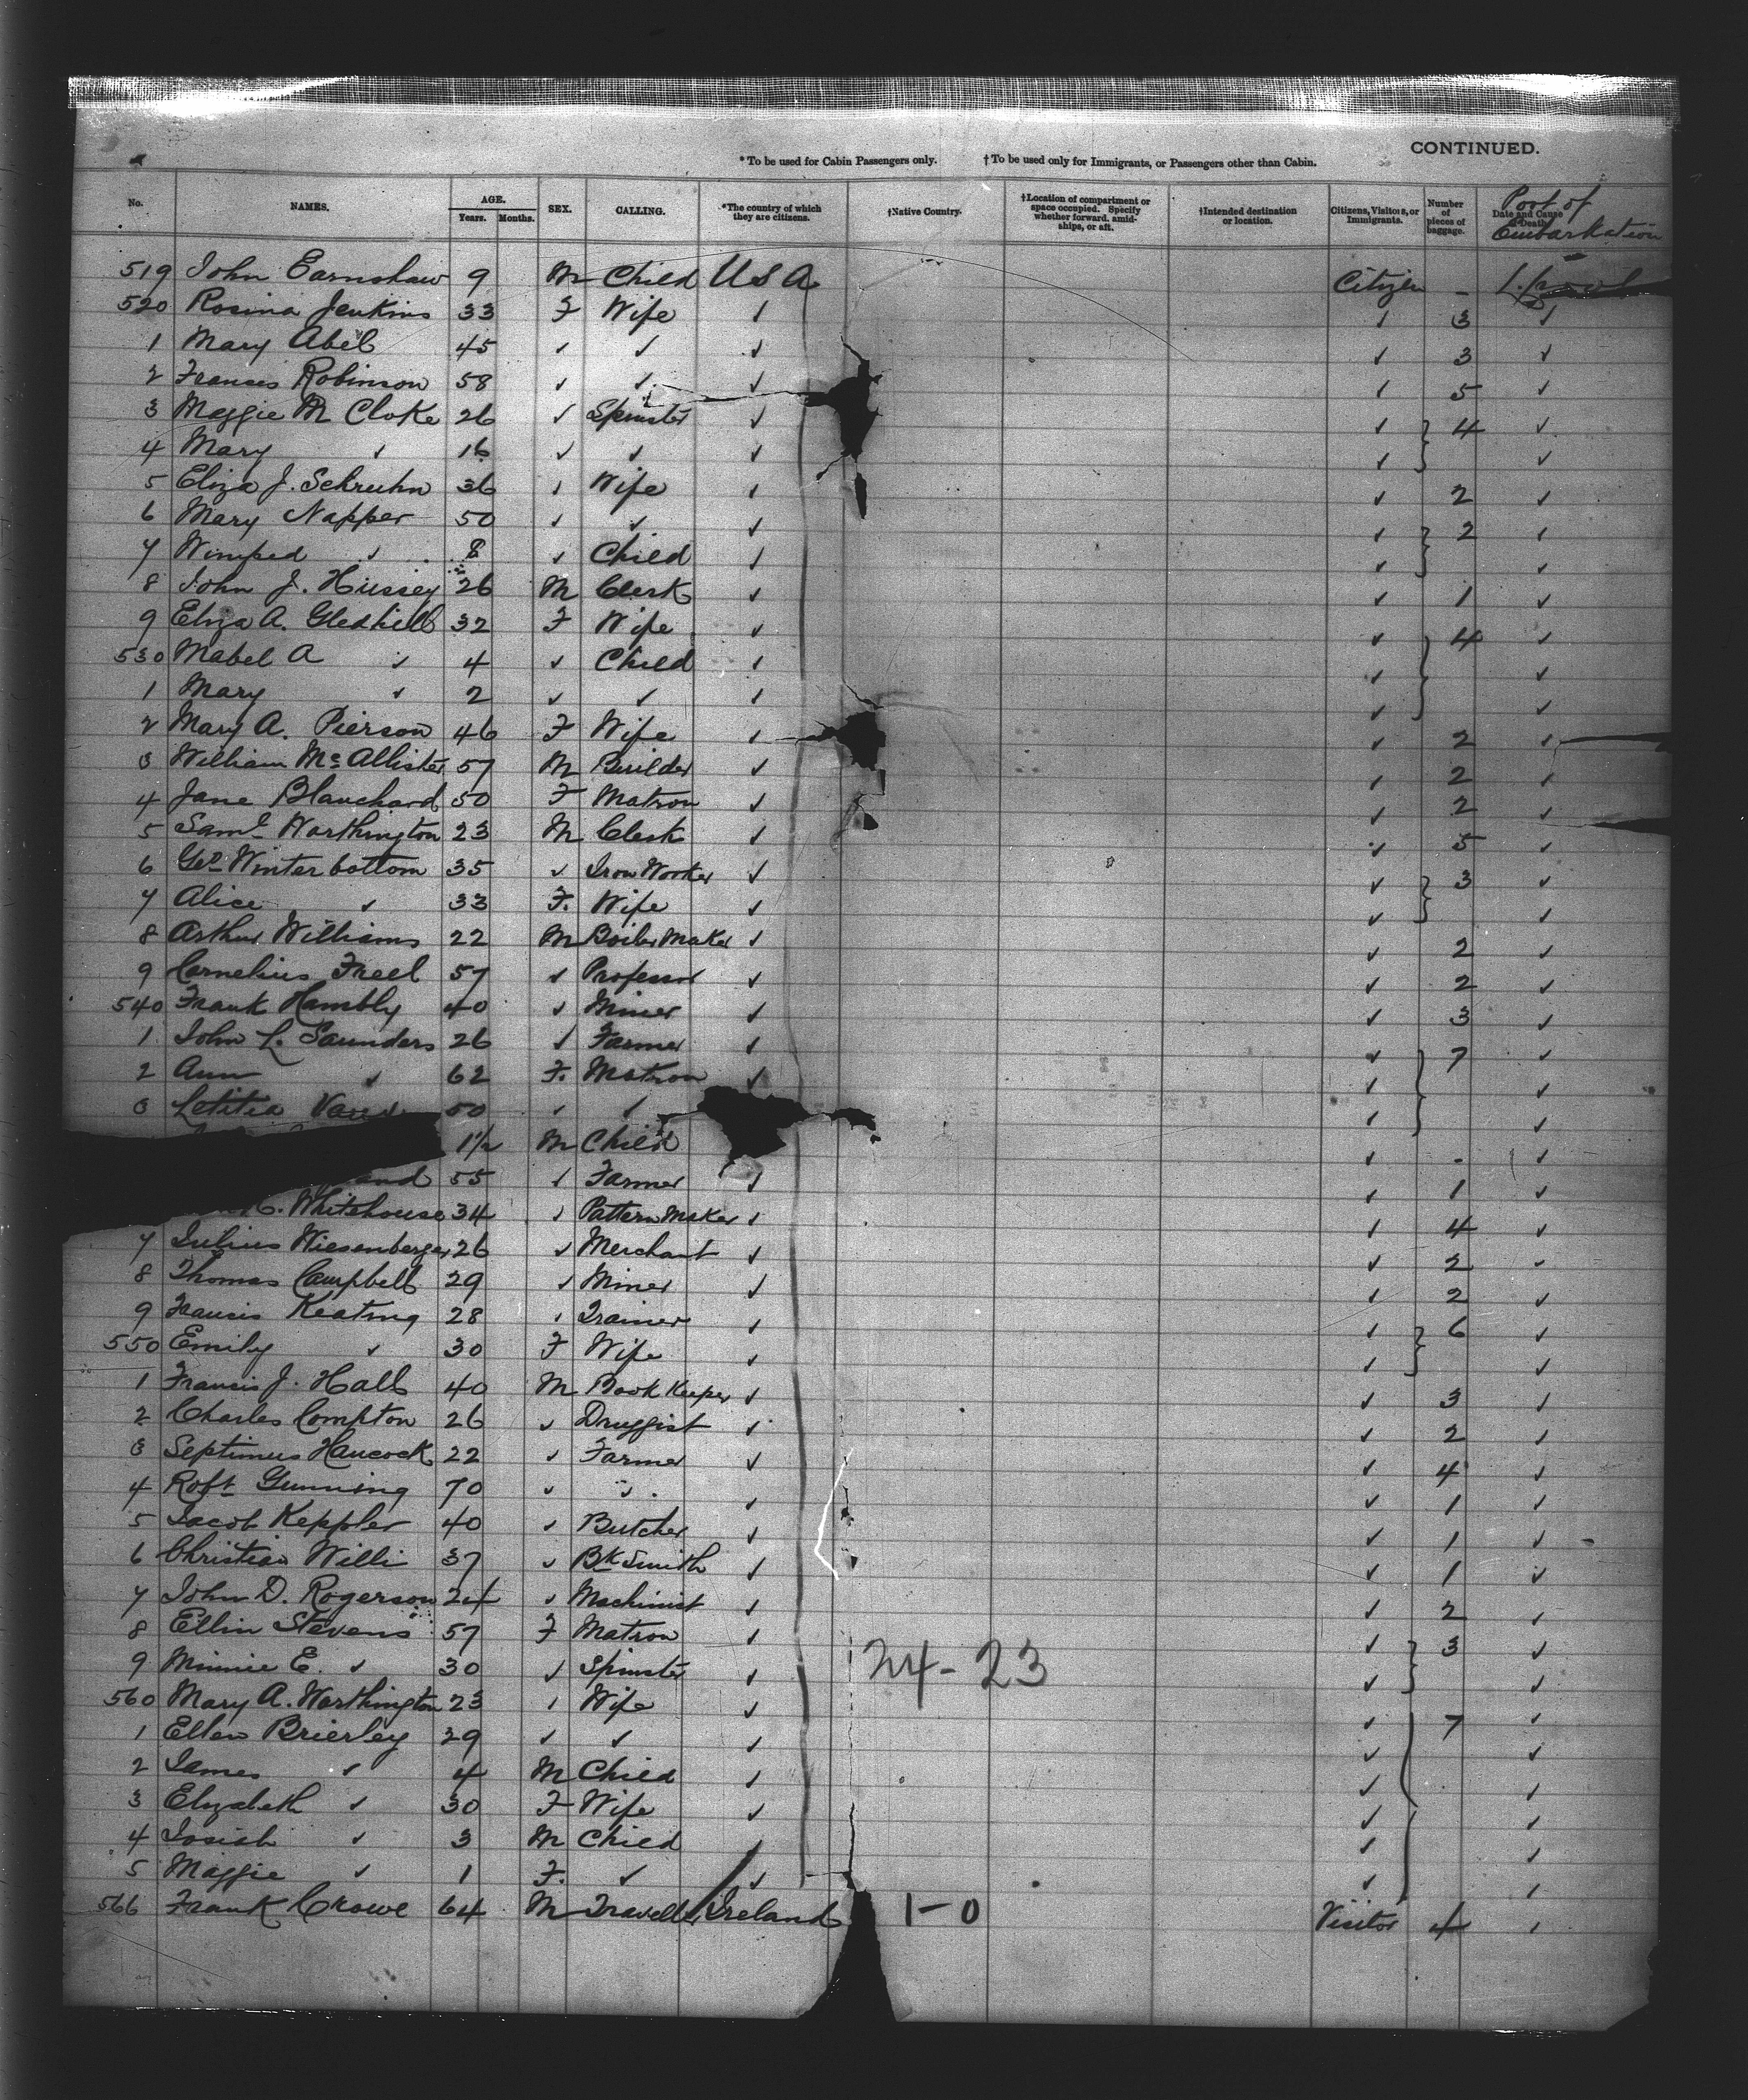 CONTINUED.
* To be used for Cabin Passengers only. † To be used only for Immigrants, or Passengers other than Cabin.
No. NAMES. AGE. Years. Months. SEX. CALLING. *The country of which they are citizens. †Native Country. †Location of compartment or space occupied. Specify whether forward, amidships, or aft. †Intended destination or location. Citizens, Visitors, or Immigrants. Number of pieces of baggage. Date and Cause of Death. Port of Embarkation
519 John Earnshaw 9 M Child U S A Citizen - L'pool
520 Rosina Jenkins 33 F Wife ✓ ✓ 3 ✓
1 Mary Abel 45 ✓ ✓ ✓ ✓ 3 ✓
2 Frances Robinson 58 ✓ ✓ ✓ ✓ 5 ✓
3 Maggie M Cloke 26 ✓ Spinster ✓ ✓ 4 ✓
4 Mary ✓ 16 ✓ ✓ ✓ ✓ ✓
5 Eliza J. Schruhn 36 ✓ Wife ✓ ✓ 2 ✓
6 Mary Napper 50 ✓ ✓ ✓ ✓ 2 ✓
7 Winifred ✓ 8 ✓ Child ✓ ✓ ✓
8 John J. Hussey 26 M Clerk ✓ ✓ 1 ✓
9 Eliza A. Gledhill 32 F Wife ✓ ✓ 4 ✓
530 Mabel A ✓ 4 ✓ Child ✓ ✓ ✓
1 Mary ✓ 2 ✓ ✓ ✓ ✓ ✓
2 Mary A. Pierson 46 F Wife ✓ ✓ 2 ✓
3 William McAllister 57 M Builder ✓ ✓ 2 ✓
4 Jane Blanchard 50 F Matron ✓ ✓ 2 ✓
5 Saml Worthington 23 M Clerk ✓ ✓ 5 ✓
6 Geo Winterbottom 35 ✓ Iron Worker ✓ ✓ 3 ✓
7 Alice ✓ 33 F. Wife ✓ ✓ ✓
8 Arthur Williams 22 M Boiler Maker ✓ ✓ 2 ✓
9 Cornelius Freel 57 ✓ Professor ✓ ✓ 2 ✓
540 Frank Hambly 40 ✓ Miner ✓ ✓ 3 ✓
1 John L. Saunders 26 ✓ Farmer ✓ ✓ 7 ✓
2 Ann ✓ 62 F. Matron ✓ ✓ ✓
3 Letitia 50 ✓ ✓ ✓ ✓
1½ M Child ✓ - ✓
55 ✓ Farmer ✓ ✓ 1 ✓
Whitehouse 34 ✓ Pattern Maker ✓ ✓ 4 ✓
7 Julius Wiesenberger 26 ✓ Merchant ✓ ✓ 2 ✓
8 Thomas Campbell 29 ✓ Miner ✓ ✓ 2 ✓
9 Francis Keating 28 ✓ Trainer ✓ ✓ 6 ✓
550 Emily ✓ 30 F Wife ✓ ✓ ✓
1 Francis J. Hall 40 M Book Keeper ✓ ✓ 3 ✓
2 Charles Compton 26 ✓ Druggist ✓ ✓ 2 ✓
3 Septimus Hancock 22 ✓ Farmer ✓ ✓ 4 ✓
4 Robt Gunning 70 ✓ ✓ ✓ ✓ 1 ✓
5 Jacob Keppler 40 ✓ Butcher ✓ ✓ 1 ✓
6 Christian Willi 37 ✓ Bk Smith ✓ ✓ 1 ✓
7 John D. Rogerson 24 ✓ Machinist ✓ ✓ 2 ✓
8 Ellin Stevens 57 F Matron ✓ ✓ 3 ✓
9 Minnie E. ✓ 30 ✓ Spinster ✓ 24-23 ✓ ✓
560 Mary A. Worthington 23 ✓ Wife ✓ ✓ 7 ✓
1 Ellen Brierley 29 ✓ ✓ ✓ ✓ ✓
2 James ✓ 4 M Child ✓ ✓ ✓
3 Elizabeth ✓ 30 F Wife ✓ ✓ ✓
4 Josiah ✓ 3 M Child ✓ ✓ ✓
5 Maggie ✓ 1 F. ✓ ✓ ✓ ✓
566 Frank Crowe 64 M Traveller Ireland 1-0 Visitor 4 ✓